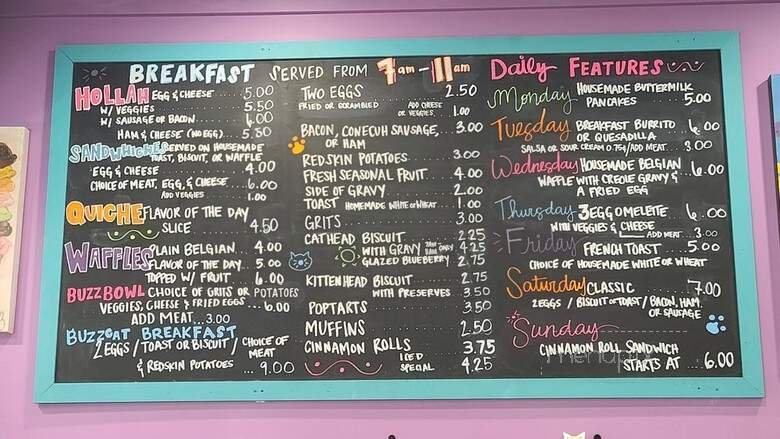 BREAKFAST SERVED FROM 7am - 11am
HOLLAH EGG & CHEESE 5.00
W/ VEGGIES 5.50
W/ SAUSAGE OR BACON 6.00
HAM & CHEESE (NO EGG) 5.50
SANDWHICHES SERVED ON HOUSEMADE
TOAST, BISCUIT, OR WAFFLE
EGG & CHEESE 4.00
CHOICE OF MEAT, EGG, & CHEESE 6.00
ADD VEGGIES 1.00
QUICHE FLAVOR OF THE DAY
SLICE 4.50
WAFFLES PLAIN BELGIAN 4.00
FLAVOR OF THE DAY 5.00
TOPPED W/ FRUIT 6.00
BUZZ BOWL CHOICE OF GRITS OR POTATOES
VEGGIES, CHEESE & FRIED EGGS 6.00
ADD MEAT 3.00
BUZZCAT BREAKFAST
2 EGGS / TOAST OR BISCUIT / CHOICE OF
MEAT
& REDSKIN POTATOES 9.00
TWO EGGS 2.50
FRIED OR SCRAMBLED ADD CHEESE
OR VEGGIES 1.00
BACON, CONECUH SAUSAGE, 3.00
OR HAM
REDSKIN POTATOES 3.00
FRESH SEASONAL FRUIT 4.00
SIDE OF GRAVY 2.00
TOAST HOMEMADE WHITE OR WHEAT 1.00
GRITS 3.00
CATHEAD BISCUIT 2.25
WITH GRAVY 4.25
GLAZED BLUEBERRY 2.75
KITTENHEAD BISCUIT 2.75
WITH PRESERVES 3.50
POPTARTS 3.50
MUFFINS 2.50
CINNAMON ROLLS 3.75
ICED
SPECIAL 4.25
Daily FEATURES
Monday HOUSEMADE BUTTERMILK
PANCAKES 5.00
Tuesday BREAKFAST BURRITO 6.00
OR QUESADILLA
SALSA OR SOUR CREAM 0.75 / ADD MEAT 3.00
Wednesday HOUSEMADE BELGIAN 6.00
WAFFLE WITH CREOLE GRAVY &
A FRIED EGG
Thursday 3 EGG OMELETTE 6.00
WITH VEGGIES & CHEESE
ADD MEAT 3.00
Friday FRENCH TOAST 5.00
CHOICE OF HOUSEMADE WHITE OR WHEAT
Saturday CLASSIC 7.00
2 EGGS / BISCUIT OR TOAST / BACON, HAM,
OR SAUSAGE
Sunday
CINNAMON ROLL SANDWICH
STARTS AT 6.00